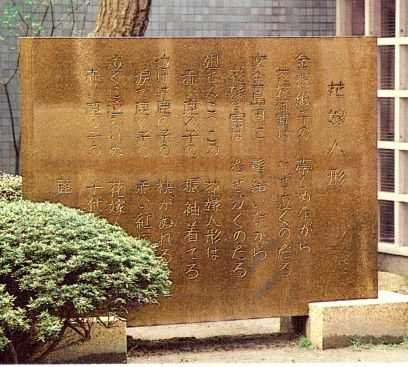 花嫁人形
金襴緞子の 帯しめながら
花嫁御寮は なぜ泣くのだろ
文金島田に 髪結いながら
花嫁御寮は なぜなくのだろ
姉さんごっこの 花嫁人形は
赤い鹿の子の 振袖着てる
泣けば鹿の子の 袂が
涙で鹿の子の 赤い紅
泣くに泣かれぬ 花嫁
赤い鹿の子の 千代